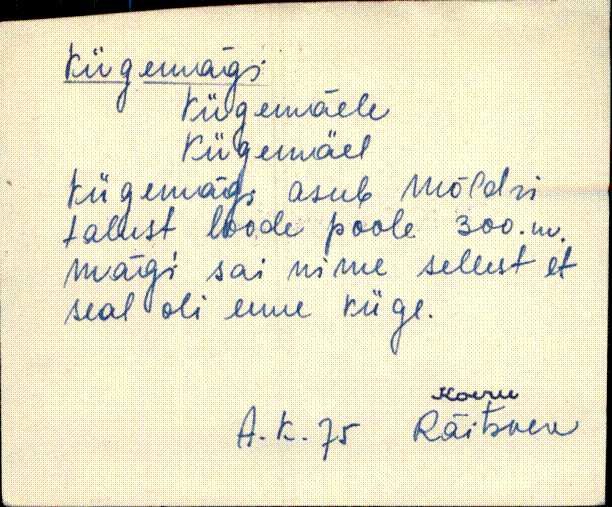 Kügemägi
Kügemäele
Kügemäel
Kügemägi asub Möldri
talust loode poole 300.m.
mägi sai nime sellest et
seal oli enne küge.
Koeru
A.K. 75 Räitsvere